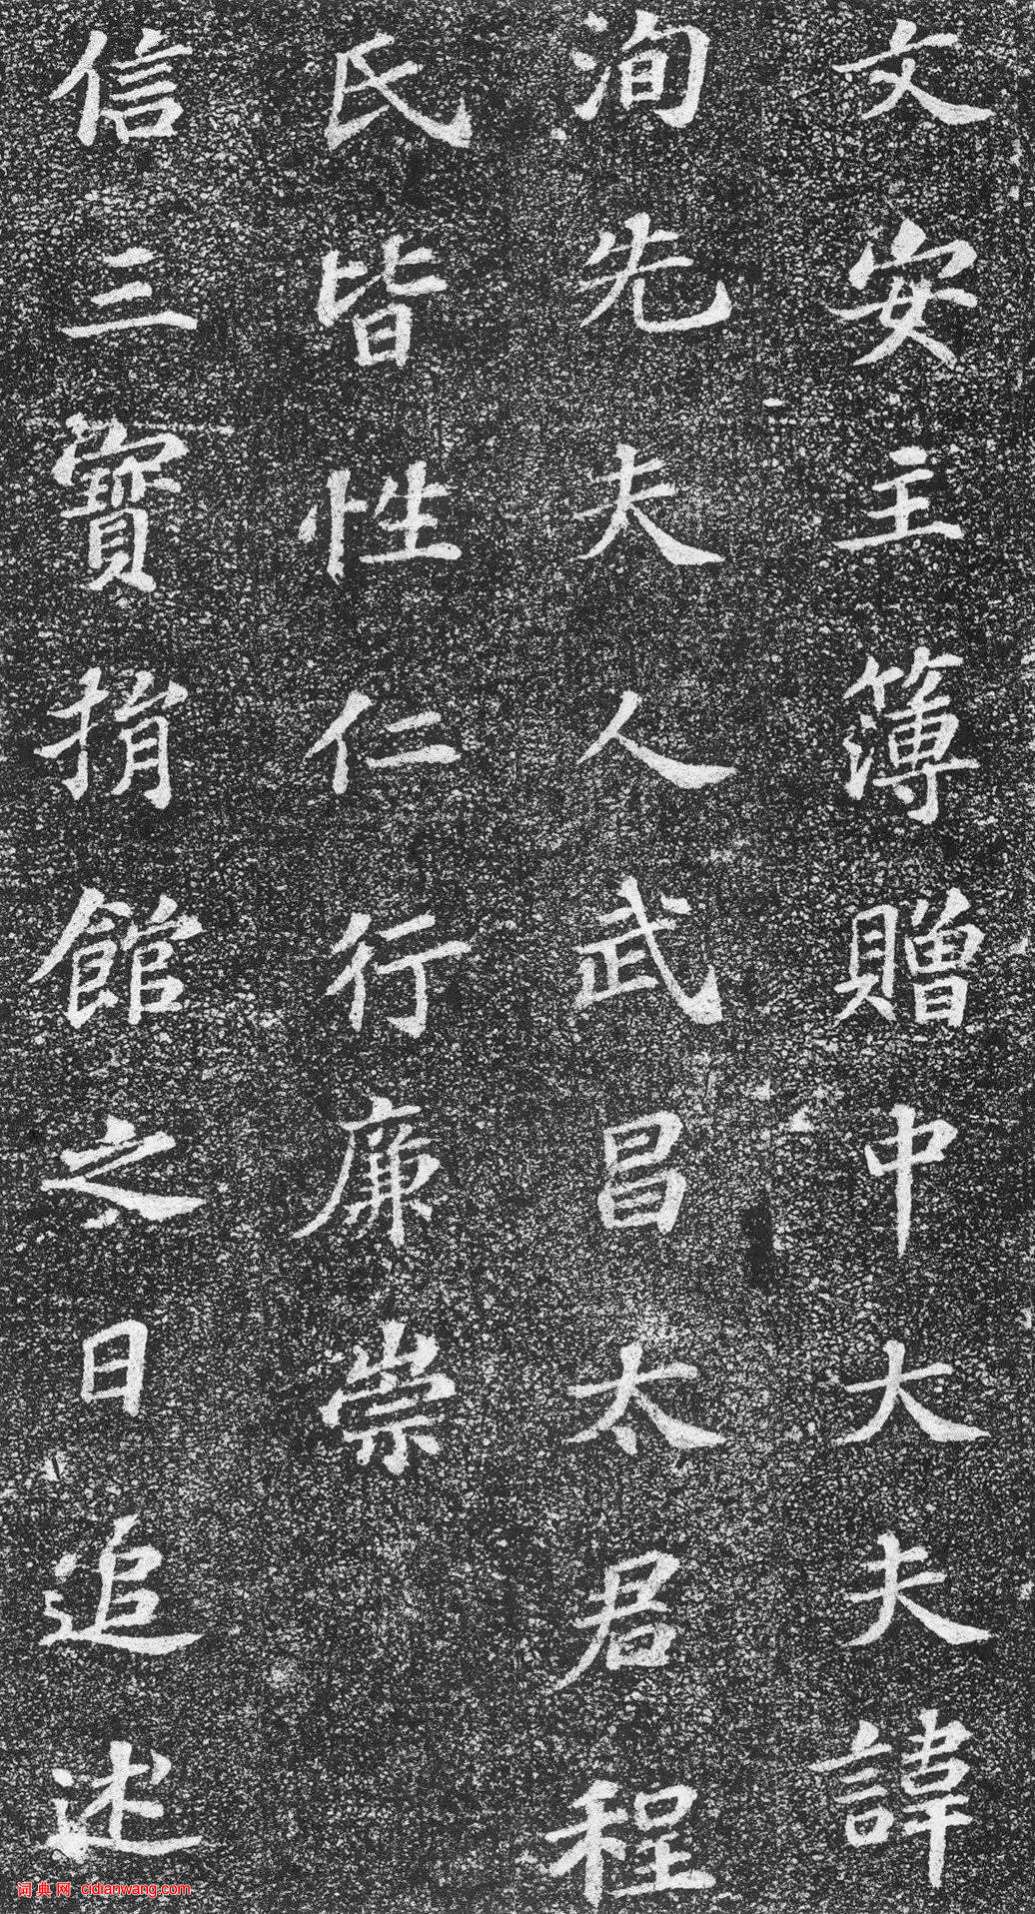 文安主簿贈中大夫諱
洵先夫人武昌太君程
氏皆性仁行廉崇
信三寶捐館之日追述
词典网 cidianwang.com